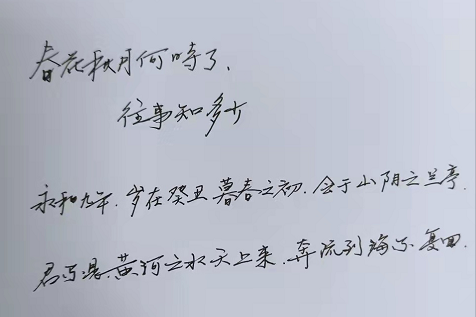 春花秋月何時了,
往事知多少
永和九年,岁在癸丑暮春之初,会于山阴之兰亭.
君不见,黄河之水天上来,奔流到海不复回.